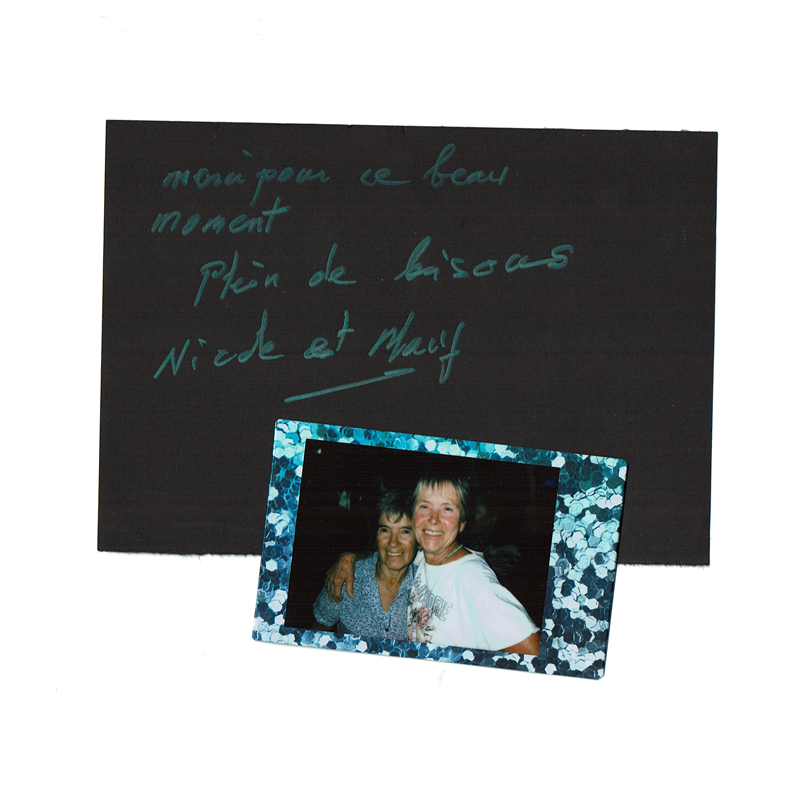 merci pour ce beau
moment
Plein de bisous
Nicole et